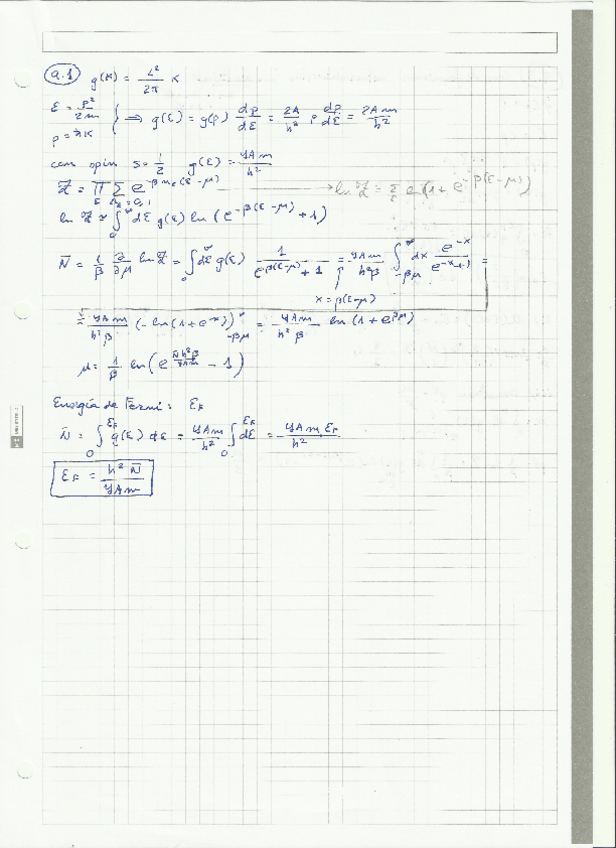 a.1 g(k) = L²/2π k
E = p²/2m
p = ħk } ⟹ g(E) = g(p) dp/dE = 2A/h² p dp/dE = 2Am/h²
con spin s = 1/2 g(E) = 4Am/h²
Z = ∏_E ∑_{n_E=0,1} e^{-β n_E (E-μ)} → ln Z = ∑_E ln(1 + e^{-β(E-μ)})
ln Z ≈ ∫₀^∞ dE g(E) ln(e^{-β(E-μ)} + 1)
N̄ = 1/β ∂/∂μ ln Z = ∫₀^∞ dE g(E) 1/(e^{β(E-μ)} + 1) = 4Am/h²β ∫_{-βμ}^∞ dx e^{-x}/(e^{-x}+1) =
x = β(E-μ)
= 4Am/h²β (-ln(1+e^{-x}))_{-βμ}^∞ = 4Am/h²β ln(1+e^{βμ})
μ = 1/β ln(e^{N̄h²β/4Am} - 1)
Energía de Fermi: E_F
N̄ = ∫₀^{E_F} g(E) dE = 4Am/h² ∫₀^{E_F} dE = 4Am E_F/h²
E_F = h² N̄/4Am